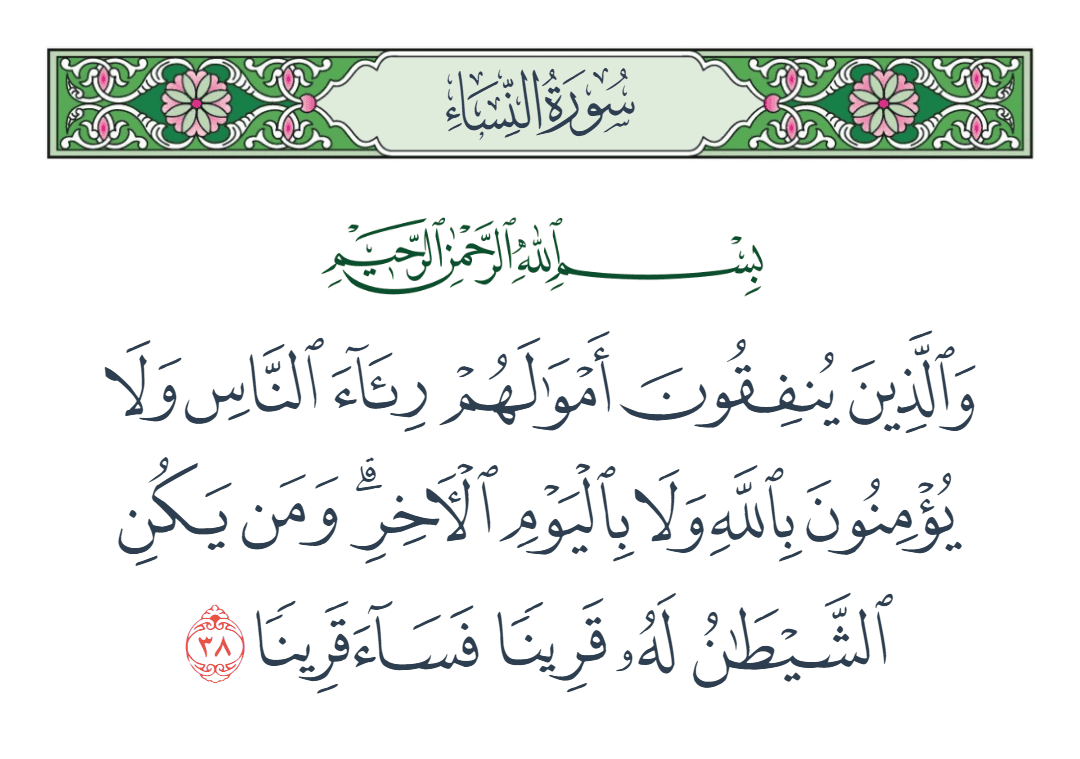 سُورَةُ النِّسَاءِ
بِسْمِ ٱللَّهِ ٱلرَّحْمَٰنِ ٱلرَّحِيمِ
وَٱلَّذِينَ يُنفِقُونَ أَمْوَٰلَهُمْ رِئَآءَ ٱلنَّاسِ وَلَا
يُؤْمِنُونَ بِٱللَّهِ وَلَا بِٱلْيَوْمِ ٱلْـَٔاخِرِ ۗ وَمَن يَكُنِ
ٱلشَّيْطَٰنُ لَهُۥ قَرِينًا فَسَآءَ قَرِينًا ٣٨